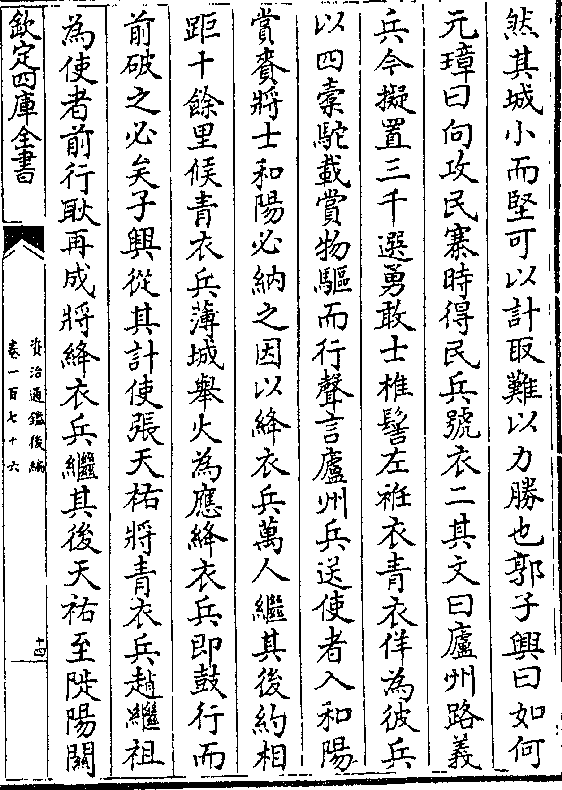 然其城小而堅可以計取難以力勝也郭子興曰如何
元璋曰向攻民寨時得民兵號衣二其文曰廬州路義
兵今擬置三千選勇敢士椎髻左衽衣青衣佯為彼兵
以四橐駝載賞物驅而行聲言廬州兵送使者入和陽
賞賚將士和陽必納之因以絳衣兵萬人繼其後約相
距十餘里候青衣兵薄城舉火為應絳衣兵即鼓行而
前破之必矣子興從其計使張天祐將青衣兵趙繼祖
為使者前行耿再成將絳衣兵繼其後天祐至陡陽關
欽定四庫全書
資治通鑑後編
卷一百七十六
十四